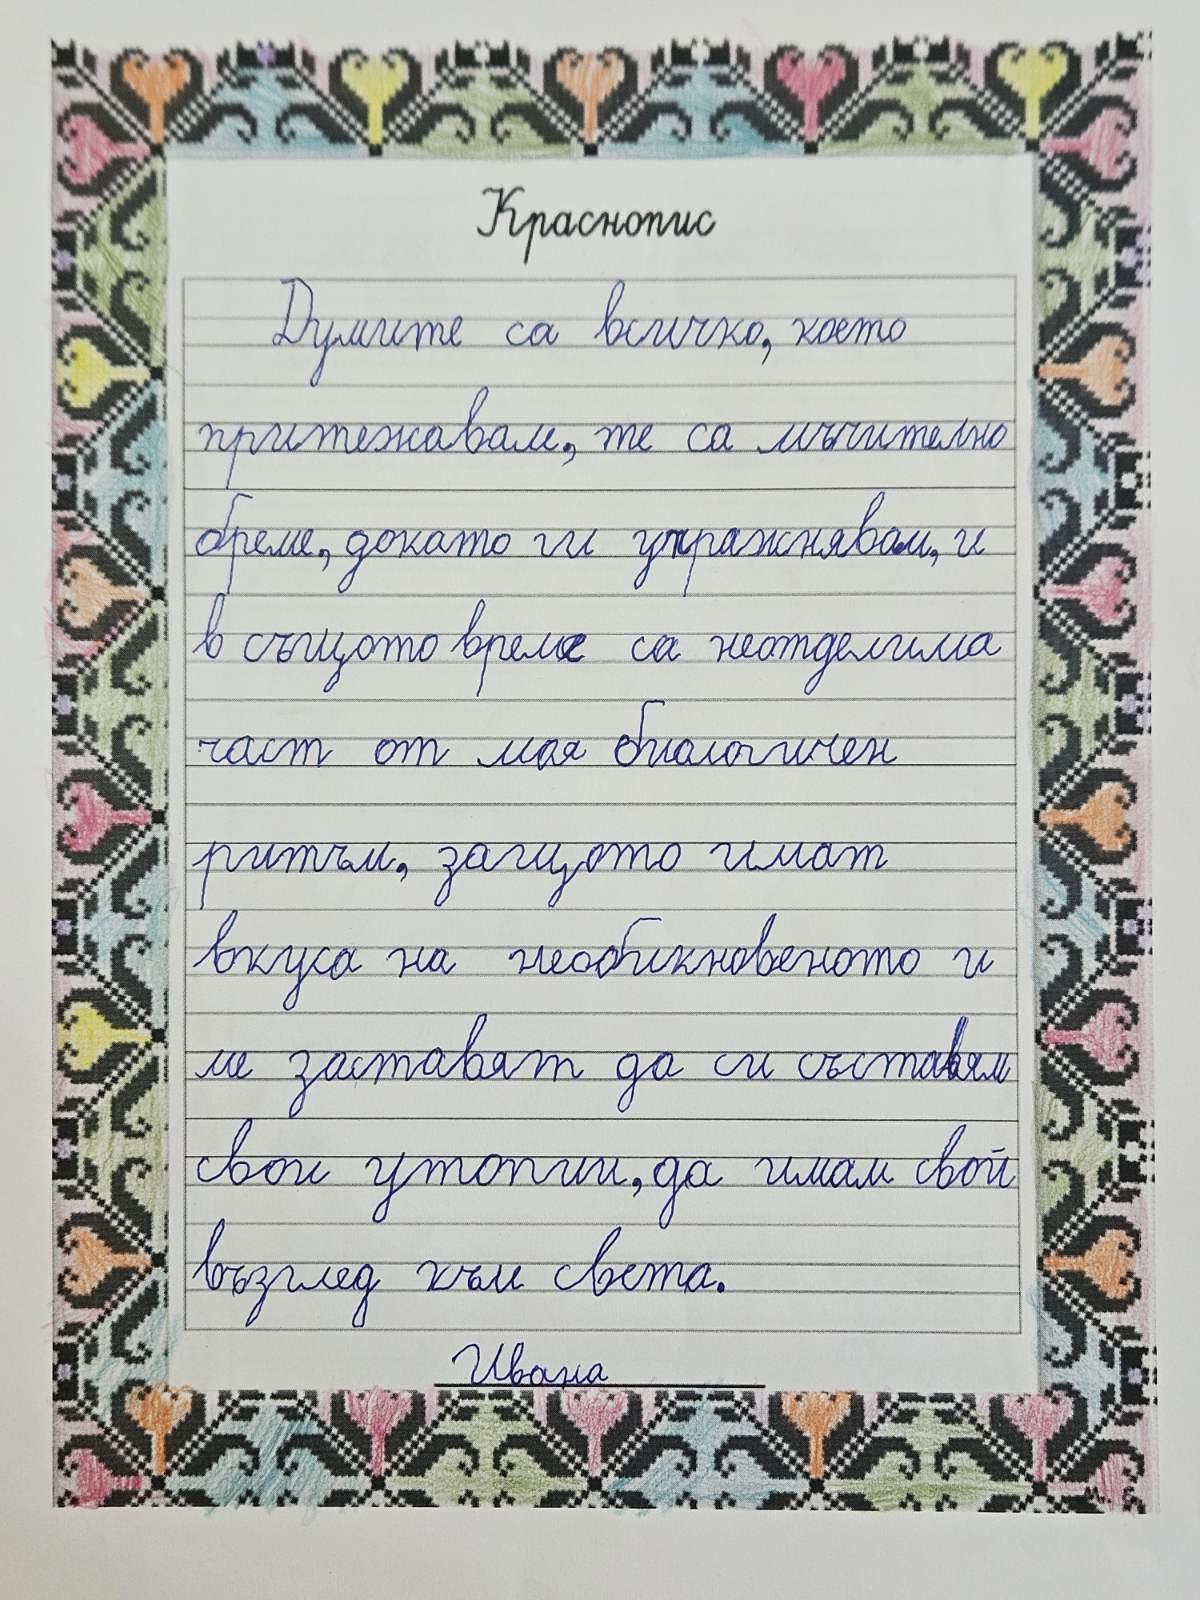 Краснопис
Думите са всичко, което
притежавам, те са мъчително
бреме, докато ги упражнявам, и
в същото време са неотделима
част от моя биологичен
ритъм, защото имат
вкуса на необикновеното и
ме заставят да си съставям
свои утопии, да имам свой
възглед към света.
Ивана